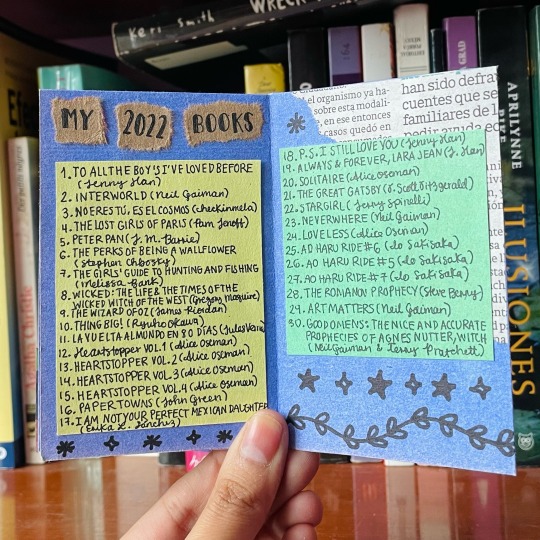 Keri Smith
WRECK
MY 2022 BOOKS
1. TO ALL THE BOYS I'VE LOVED BEFORE
(Jenny Han)
2. INTERWORLD (Neil Gaiman)
3. NO ERES TÚ, ES EL COSMOS (checkinmela)
4. THE LOST GIRLS OF PARIS (Pam Jenoff)
5. PETER PAN (J. M. Barrie)
6. THE PERKS OF BEING A WALLFLOWER
(Stephen Chbosky)
7. THE GIRLS' GUIDE TO HUNTING AND FISHING
(Melissa Bank)
8. WICKED: THE LIFE & THE TIMES OF THE
WICKED WITCH OF THE WEST (Gregory Maguire)
9. THE WIZARD OF OZ (James Riordan)
10. THING BIG! (Ryuho Okawa)
11. LA VUELTA AL MUNDO EN 80 DÍAS (Jules Verne)
12. Heartstopper VOL. 1 (Alice Oseman)
13. HEARTSTOPPER VOL. 2 (Alice Oseman)
14. HEARTSTOPPER VOL. 3 (Alice Oseman)
15. HEARTSTOPPER VOL. 4 (Alice Oseman)
16. PAPER TOWNS (John Green)
17. I AM NOT YOUR PERFECT MEXICAN DAUGHTER
(Erika L. Sánchez)
el organismo ya ha
sobre esta modali-
en ese entonces
casos quedó en
han sido defrau
cuentes que se
familiares de l
pedir ayuda e
18. P.S. I STILL LOVE YOU (Jenny Han)
19. ALWAYS & FOREVER, LARA JEAN (J. Han)
20. SOLITAIRE (Alice Oseman)
21. THE GREAT GATSBY (F. Scott Fitzgerald)
22. STARGIRL (Jerry Spinelli)
23. NEVERWHERE (Neil Gaiman)
24. LOVELESS (Alice Oseman)
25. AO HARU RIDE #6 (Io Sakisaka)
26. AO HARU RIDE #5 (Io Sakisaka)
27. AO HARU RIDE #7 (Io Sakisaka)
28. THE ROMANOV PROPHECY (Steve Berry)
29. ART MATTERS (Neil Gaiman)
30. GOOD OMENS: THE NICE AND ACCURATE
PROPHECIES OF AGNES NUTTER, WITCH
(Neil Gaiman & Terry Pratchett)
APRILYNNE
PIKE
ILUSIONES